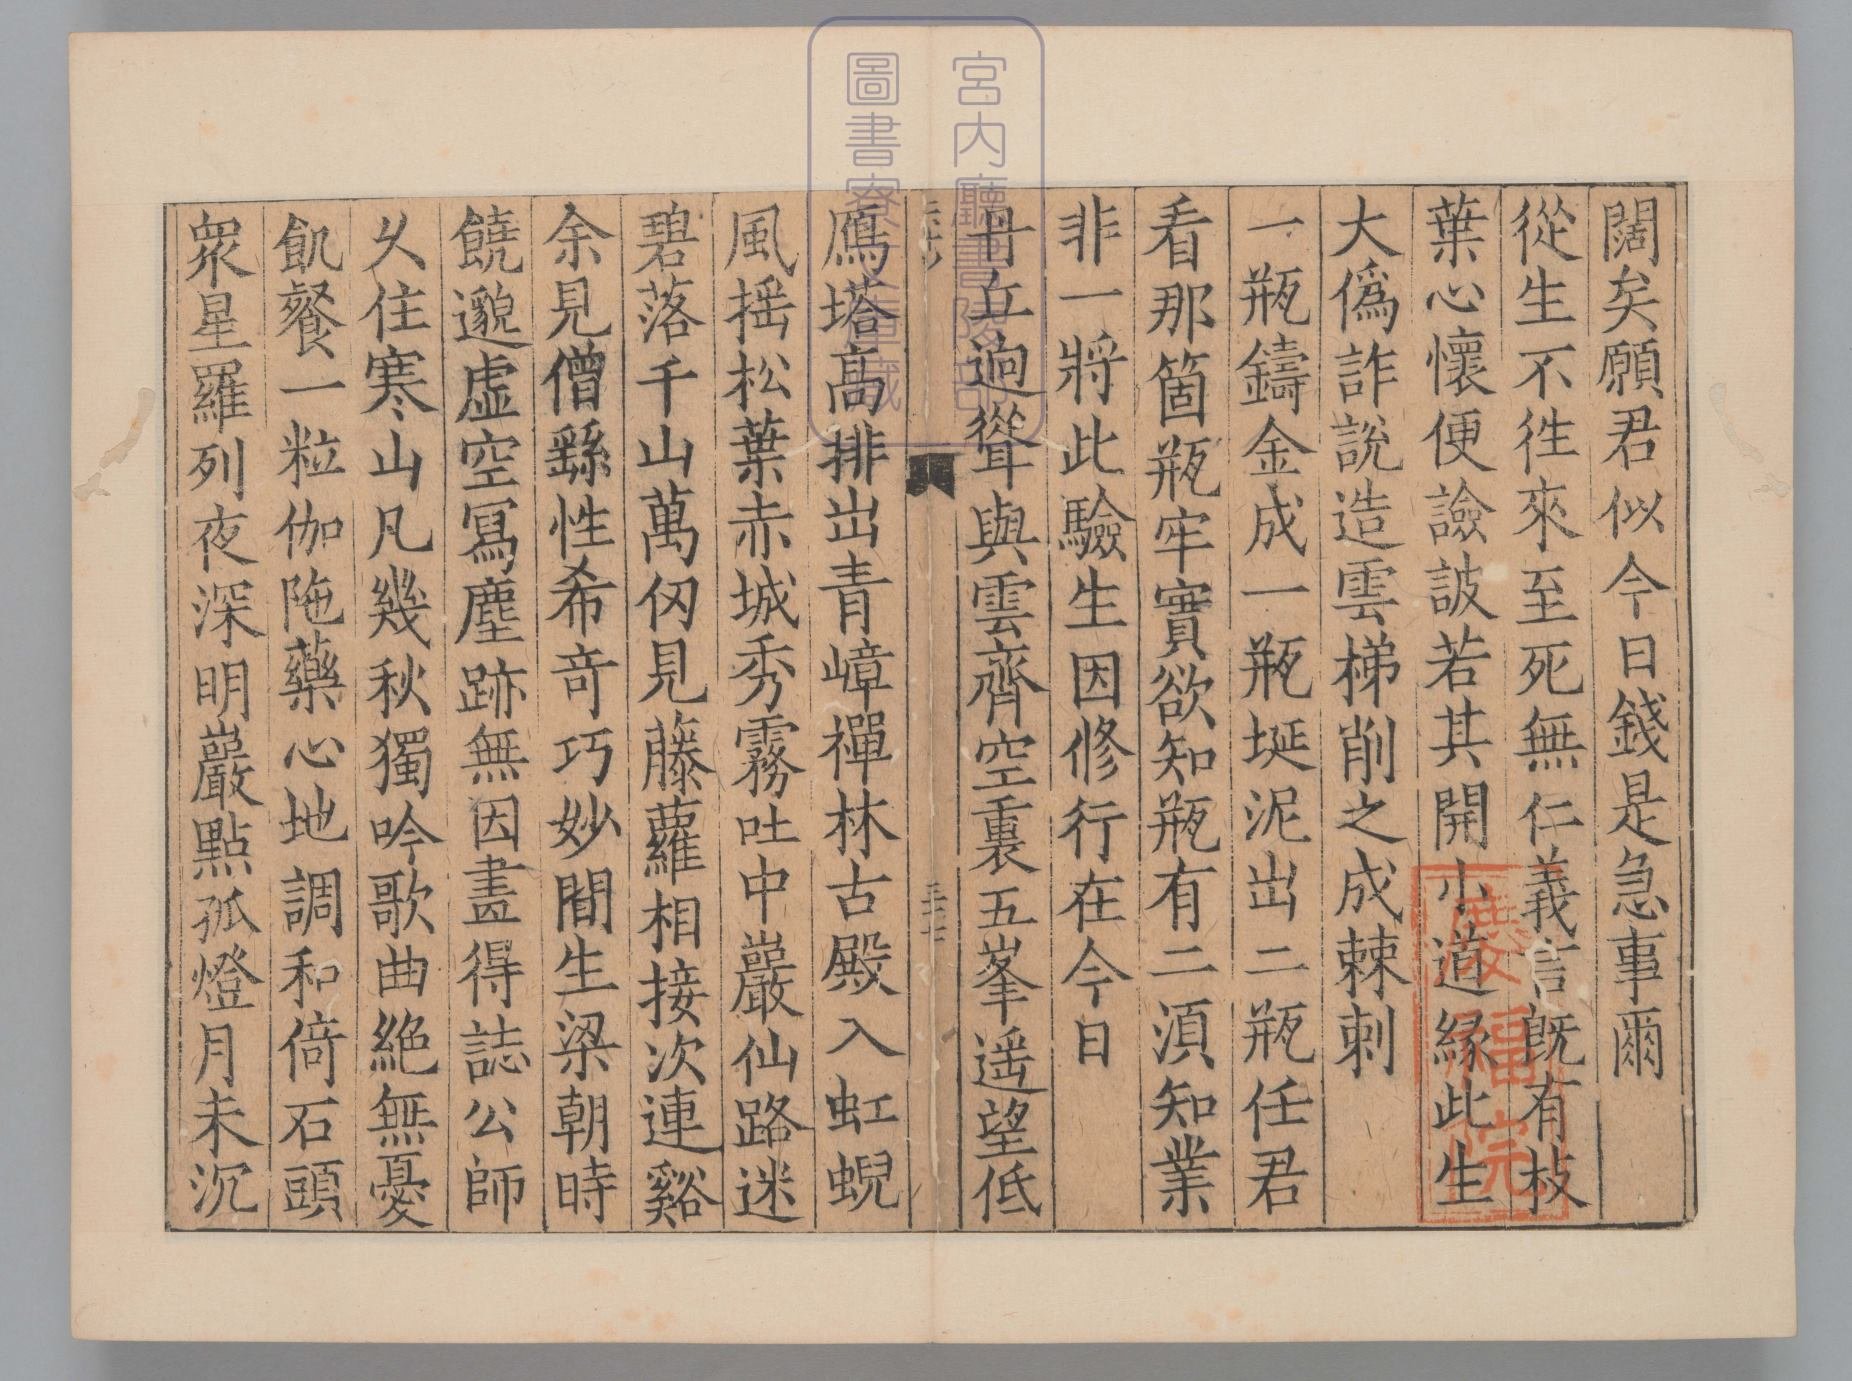 闊矣願君似今日錢是急事爾
從生不徃來至死無仁義言旣有枝
葉心懷便譣詖若其開小道緣此生
大僞詐說造雲梯削之成棘刺
一瓶鑄金成一瓶埏泥出二瓶任君
看那箇瓶牢實欲知瓶有二須知業
非一將此驗生因修行在今日
丹丘逈聳與雲齊空裏五峯遥望低
鴈塔高排出青嶂禪林古殿入虹蜺
風揺松葉赤城秀霧吐中巖仙路迷
碧落千山萬仞見藤蘿相接次連谿
余見僧繇性希奇巧妙間生梁朝時
饒邈虛空寫塵跡無因畫得誌公師
久住寒山凡幾秋獨吟歌曲絶無憂
飢餐一粒伽陁藥心地調和倚石頭
衆星羅列夜深明巖點孤燈月未沉
宮内廳書陵部
圖書寮文庫藏